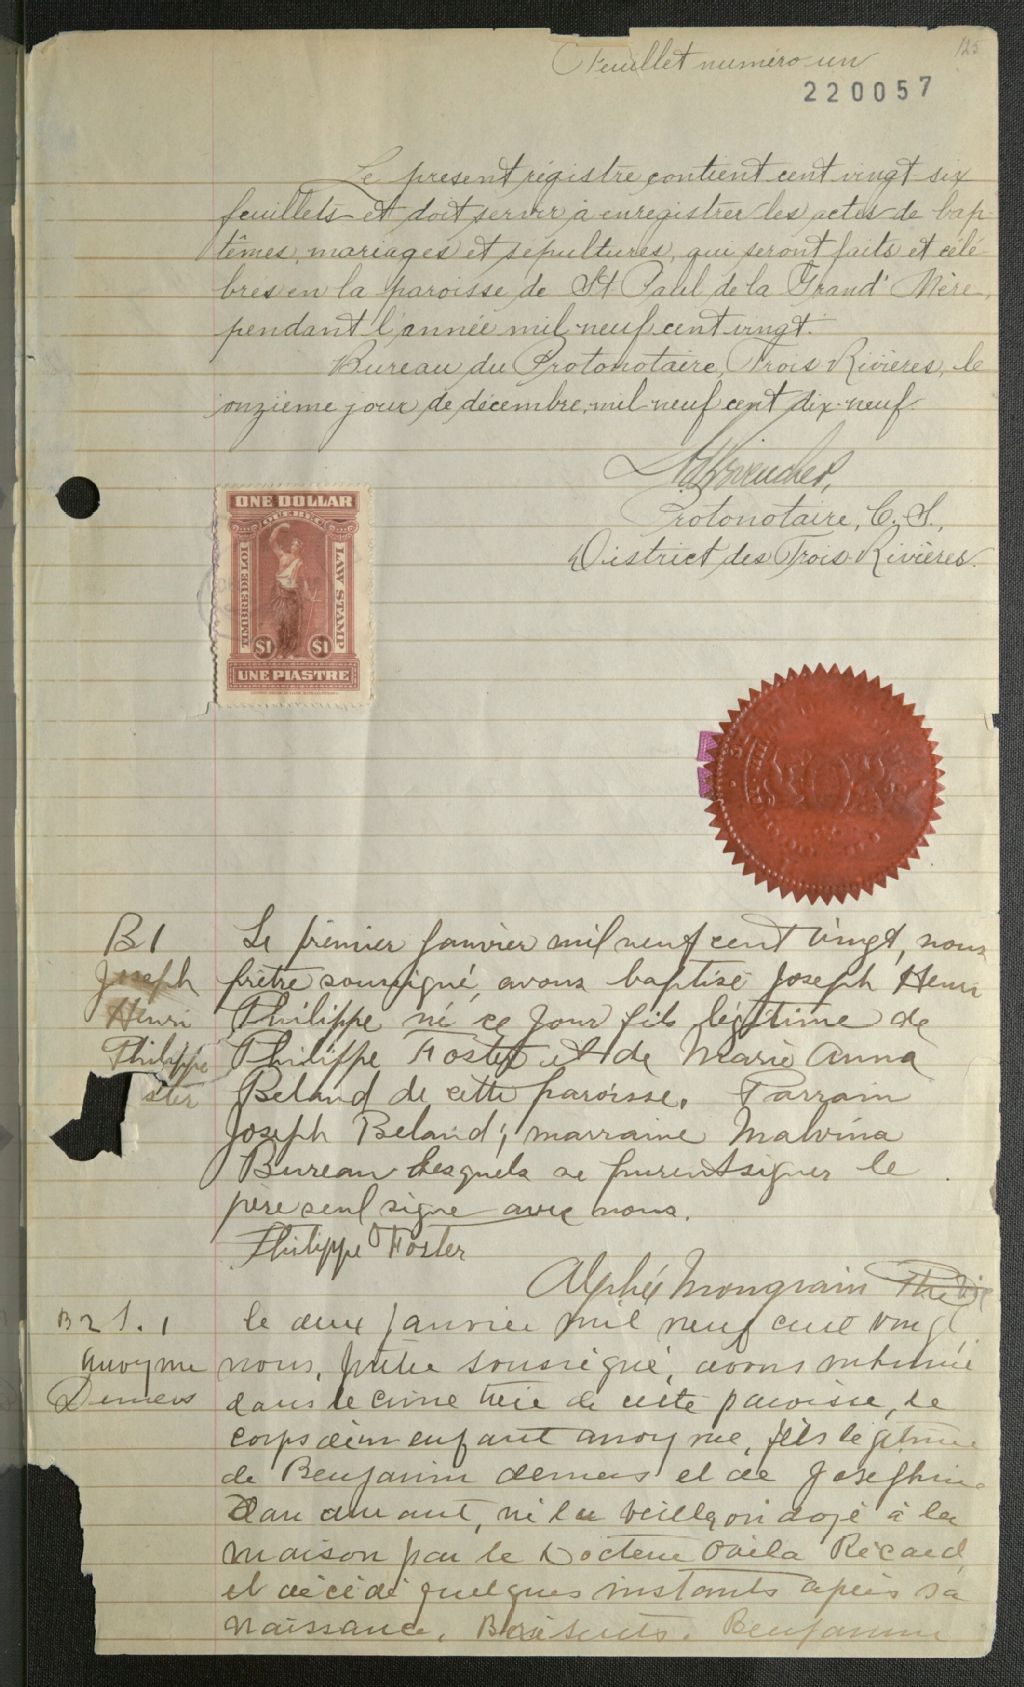 125
Feuillet numéro un
220057
Le présent régistre contient cent vingt-six
feuillets et doit servir à enregistrer les actes de bap-
têmes, mariages et sépultures, qui seront faits et célé-
brés en la paroisse de St Paul de la Grand' Mère,
pendant l'année mil-neuf cent vingt.
Bureau du Protonotaire, Trois Rivières, le
onzième jour de décembre, mil-neuf cent dix-neuf.
Protonotaire, C. S.,
District des Trois-Rivières.
ONE DOLLAR
QUEBEC
TIMBRE DE LOI
LAW STAMP
$1 $1
UNE PIASTRE
B1
Joseph
Henri
Philippe
ster
Le premier Janvier mil neuf cent vingt, nous
prêtre soussigné, avons baptisé Joseph Henri
Philippe né ce jour fils légitime de
Philippe Foster et de Marie Anna
Beland de cette paroisse. Parrain
Joseph Beland; marraine Malvina
Bureau lesquels ne purent signer le
père seul signe avec nous.
Philippe Foster
Alphée Mongrain Ptre Vic
B2 S.1
Anonyme
Demers
le deux Janvier mil neuf cent vingt
nous, prêtre soussigné, avons inhumé
dans le cimetière de cette paroisse, le
corps d'un enfant anonyme, fils légitime
de Benjamin demers et de Josephine
, né la veille, ondoyé à la
maison par le Docteur Ovila Ricard
et décédé quelques instants après sa
naissance. Présents. Benjamin